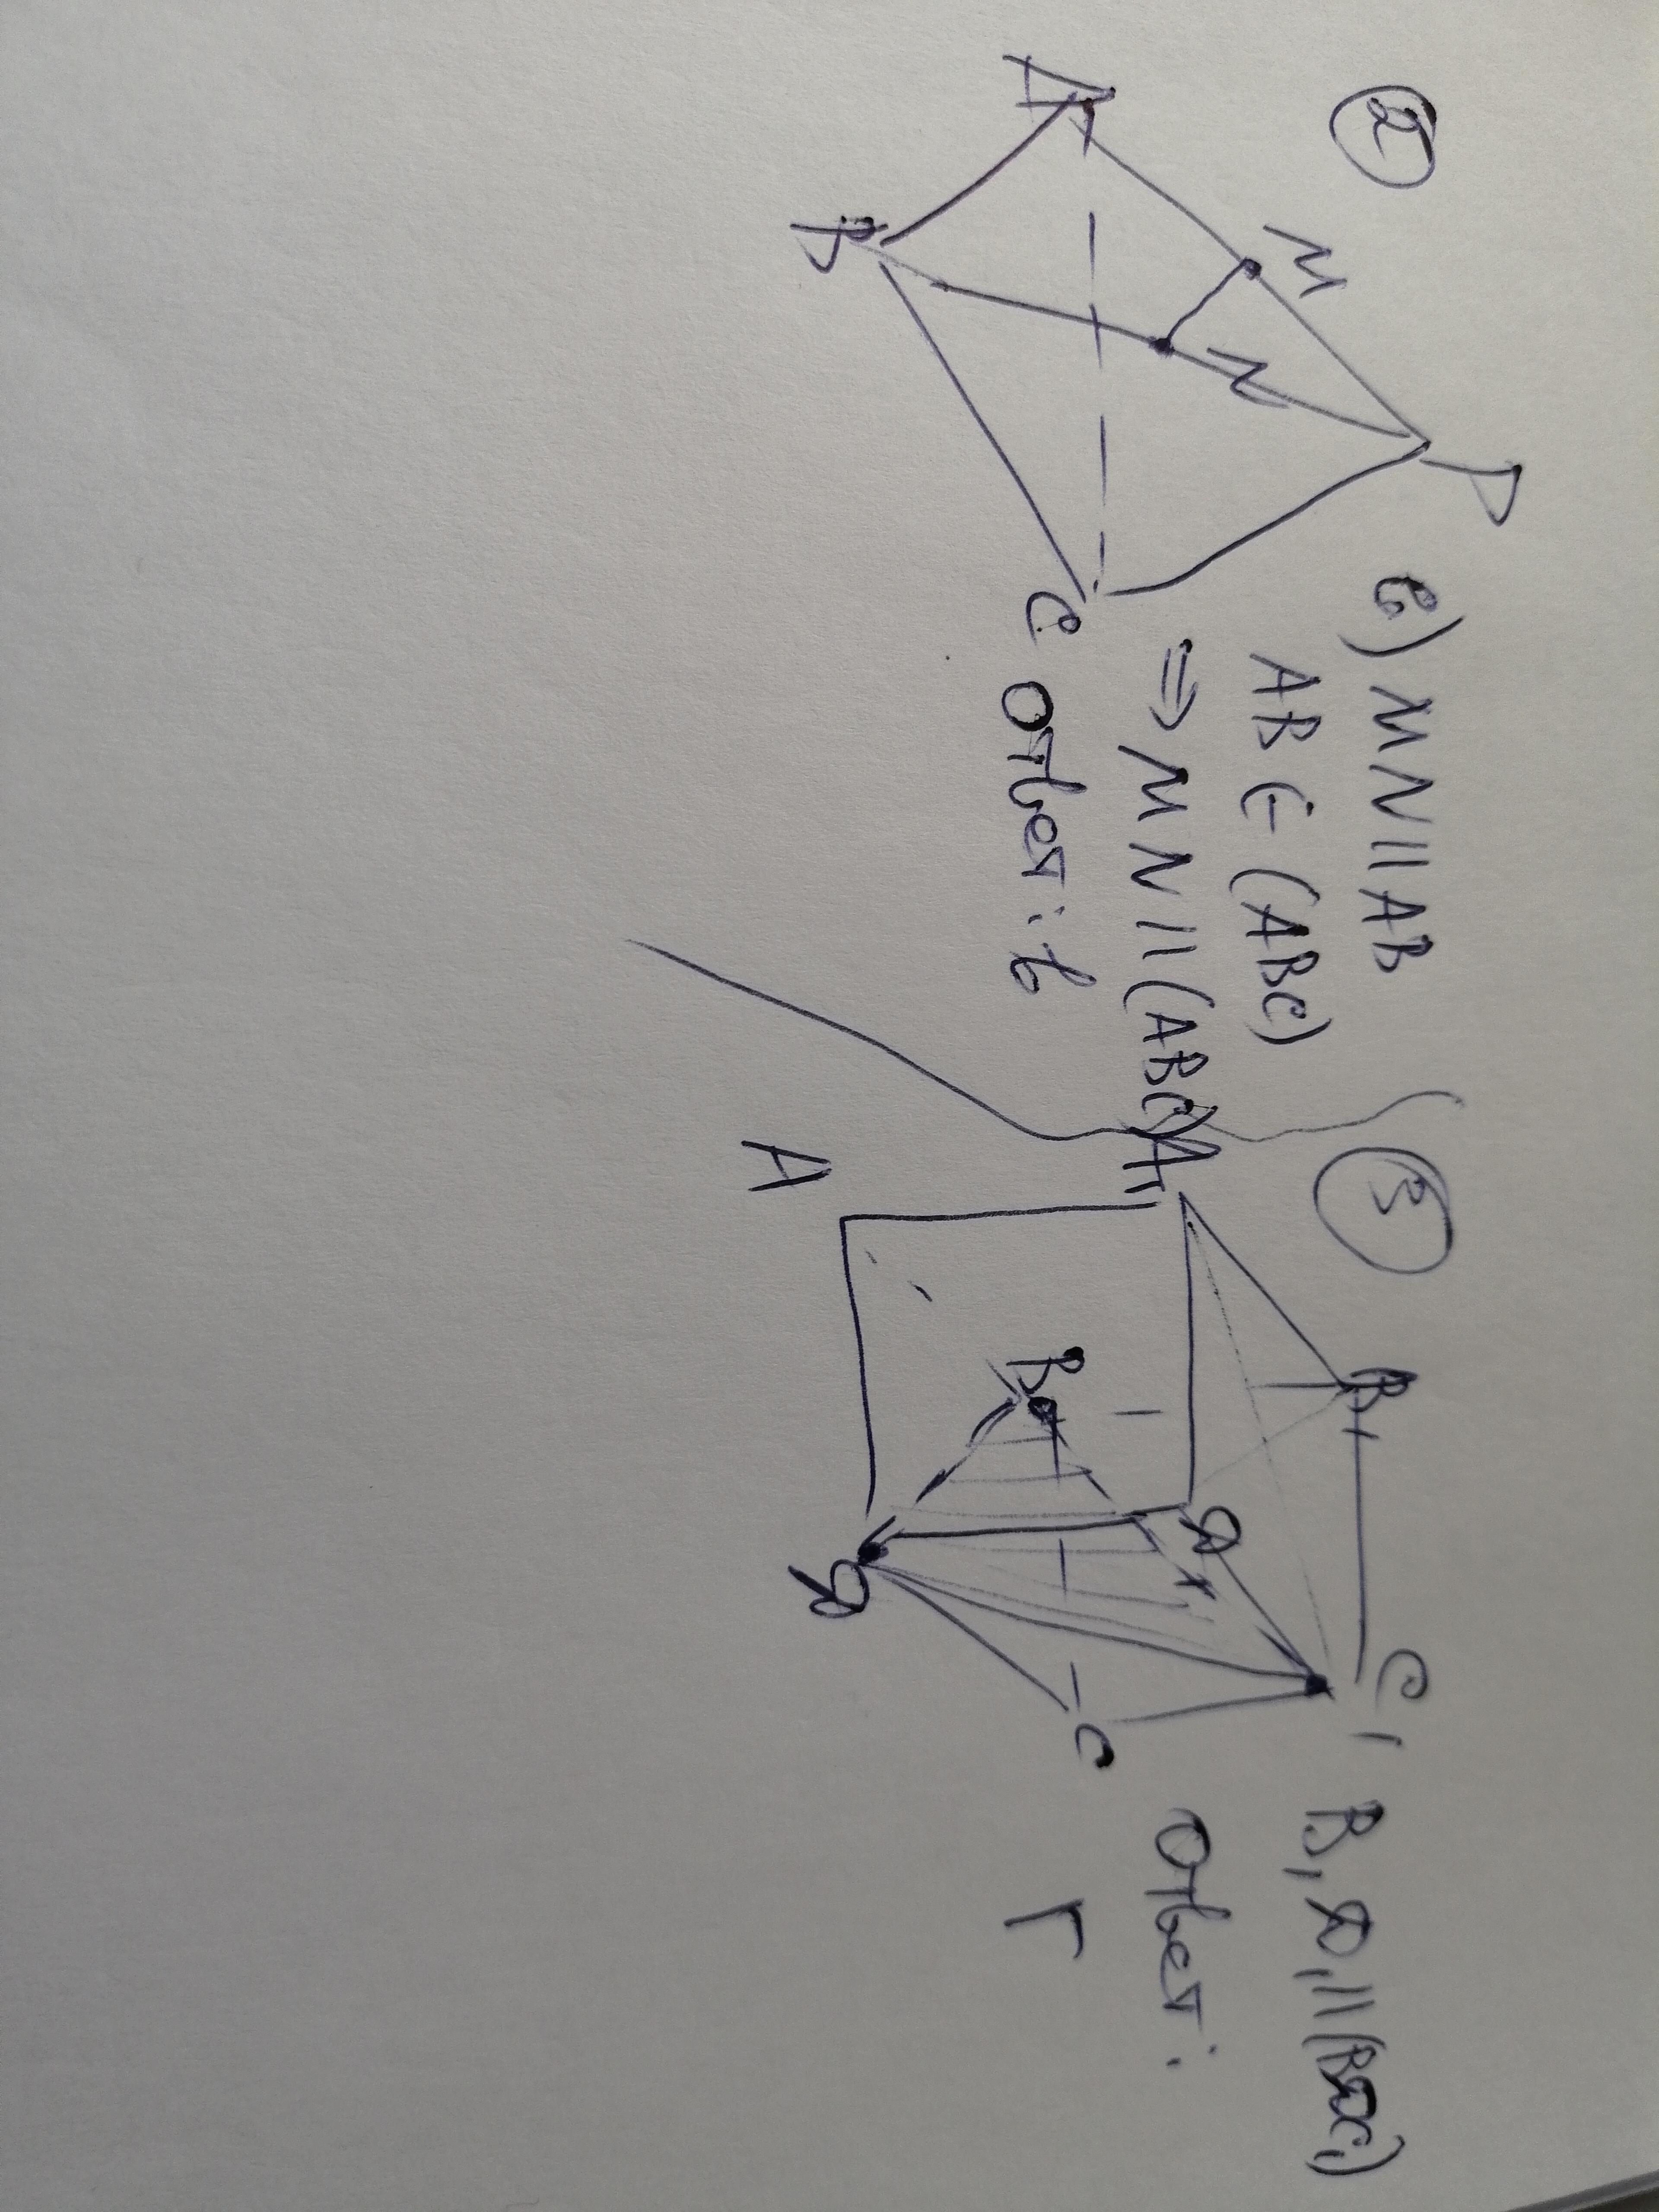 2
D
M
N
A
B
C
в) MN || AB
AB ∈ (ABC)
⇒ MN || (ABC)
Ответ: в
3
B₁
C₁
A₁
D₁
B
C
A
D
B₁D₁ || (BDC₁)
Ответ:
Г